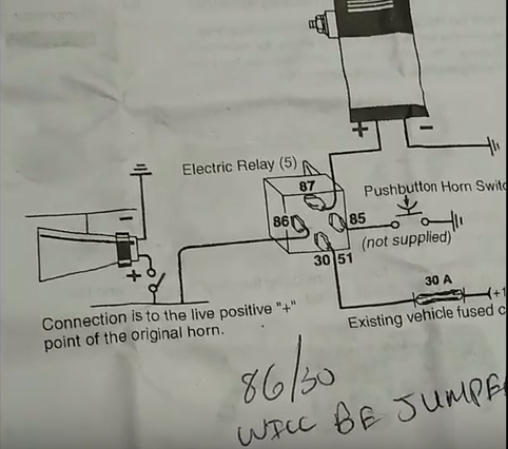 + −
Electric Relay (5)
87
Pushbutton Horn
86 85
(not supplied)
−
+
30 51
30 A
(+1
Connection is to the live positive "+"
point of the original horn.
Existing vehicle fused
86/30
WILL BE